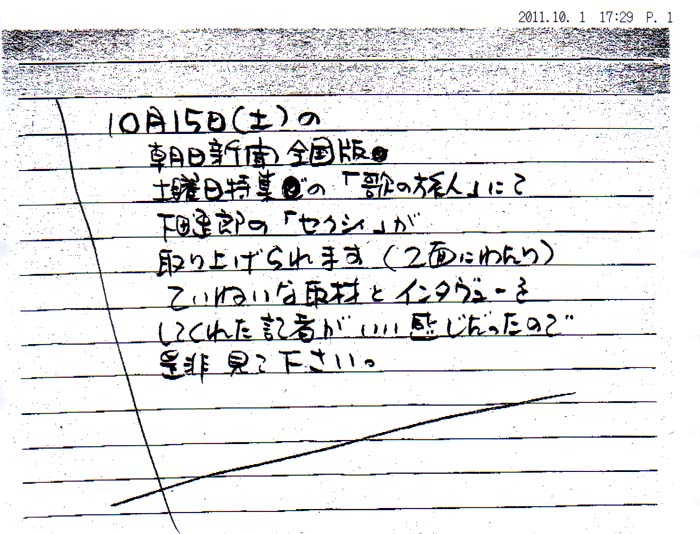 2011.10. 1 17:29 P. 1
10月15日(土)の
朝日新聞全国版
土曜日特集の「歌の旅人」にて
下田逸郎の「セクシィ」が
取り上げられます(2面にわたり)
ていねいな取材とインタヴューを
してくれた記者がいい感じだったので
是非見て下さい。